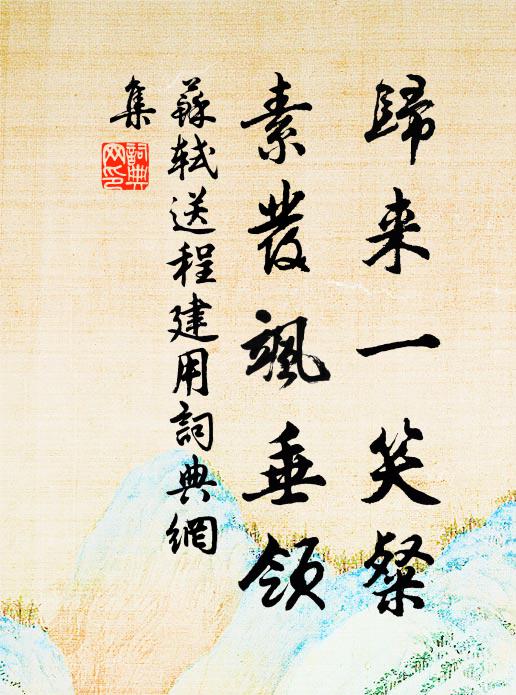 歸来一笑粲
素發颯垂領
蘇軾送程建用詞典網
集
詞典
网印